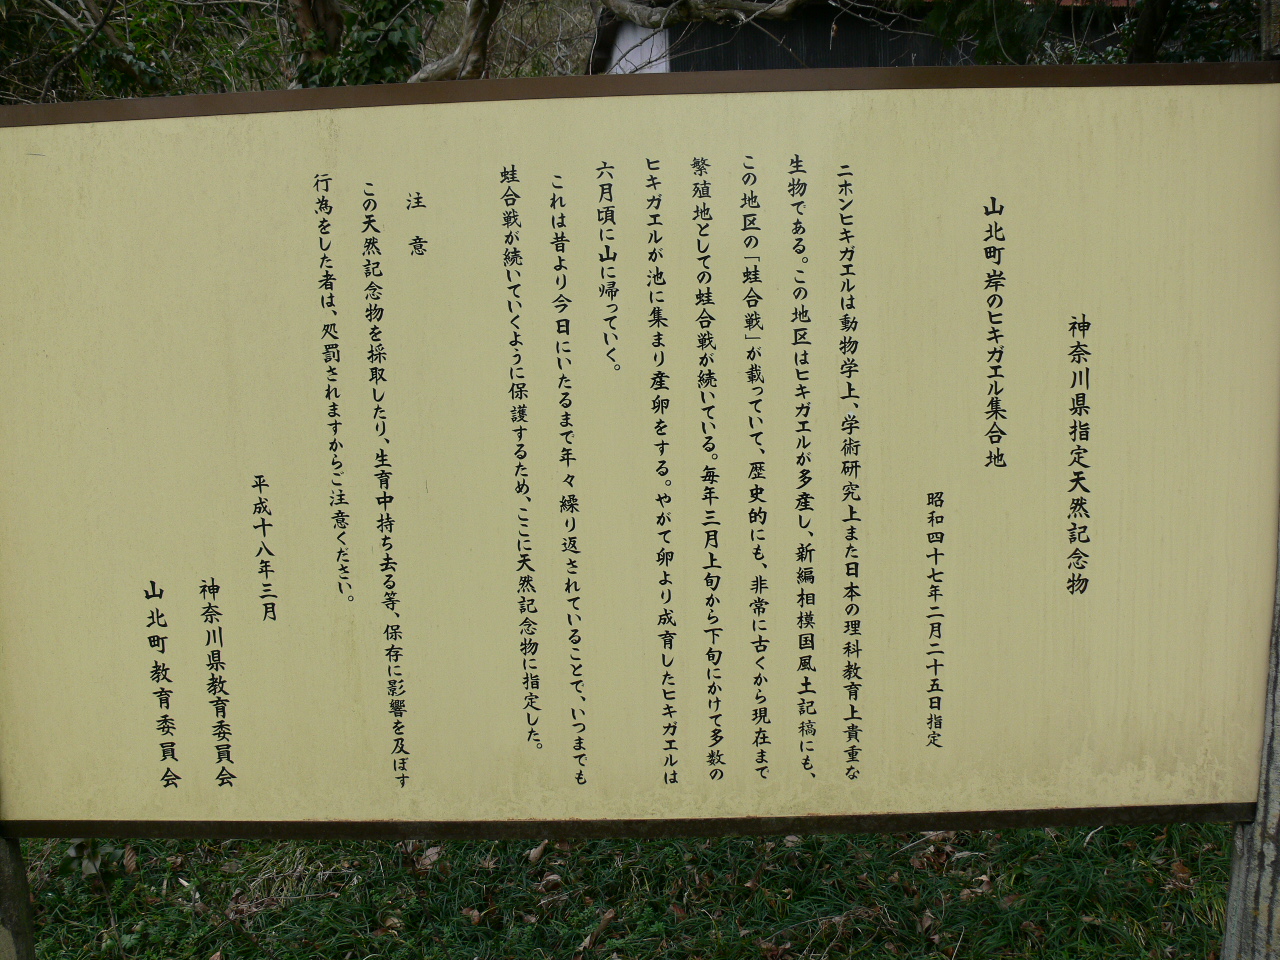 神奈川県指定天然記念物
山北町岸のヒキガエル集合地
昭和四十七年二月二十五日指定
ニホンヒキガエルは動物学上、学術研究上また日本の理科教育上貴重な
生物である。この地区はヒキガエルが多産し、新編相模国風土記稿にも、
この地区の「蛙合戦」が載っていて、歴史的にも、非常に古くから現在まで
繁殖地としての蛙合戦が続いている。毎年三月上旬から下旬にかけて多数の
ヒキガエルが池に集まり産卵をする。やがて卵より成育したヒキガエルは
六月頃に山に帰っていく。
これは昔より今日にいたるまで年々繰り返されていることで、いつまでも
蛙合戦が続いていくように保護するため、ここに天然記念物に指定した。
注意
この天然記念物を採取したり、生育中持ち去る等、保存に影響を及ぼす
行為をした者は、処罰されますからご注意ください。
平成十八年三月
神奈川県教育委員会
山北町教育委員会